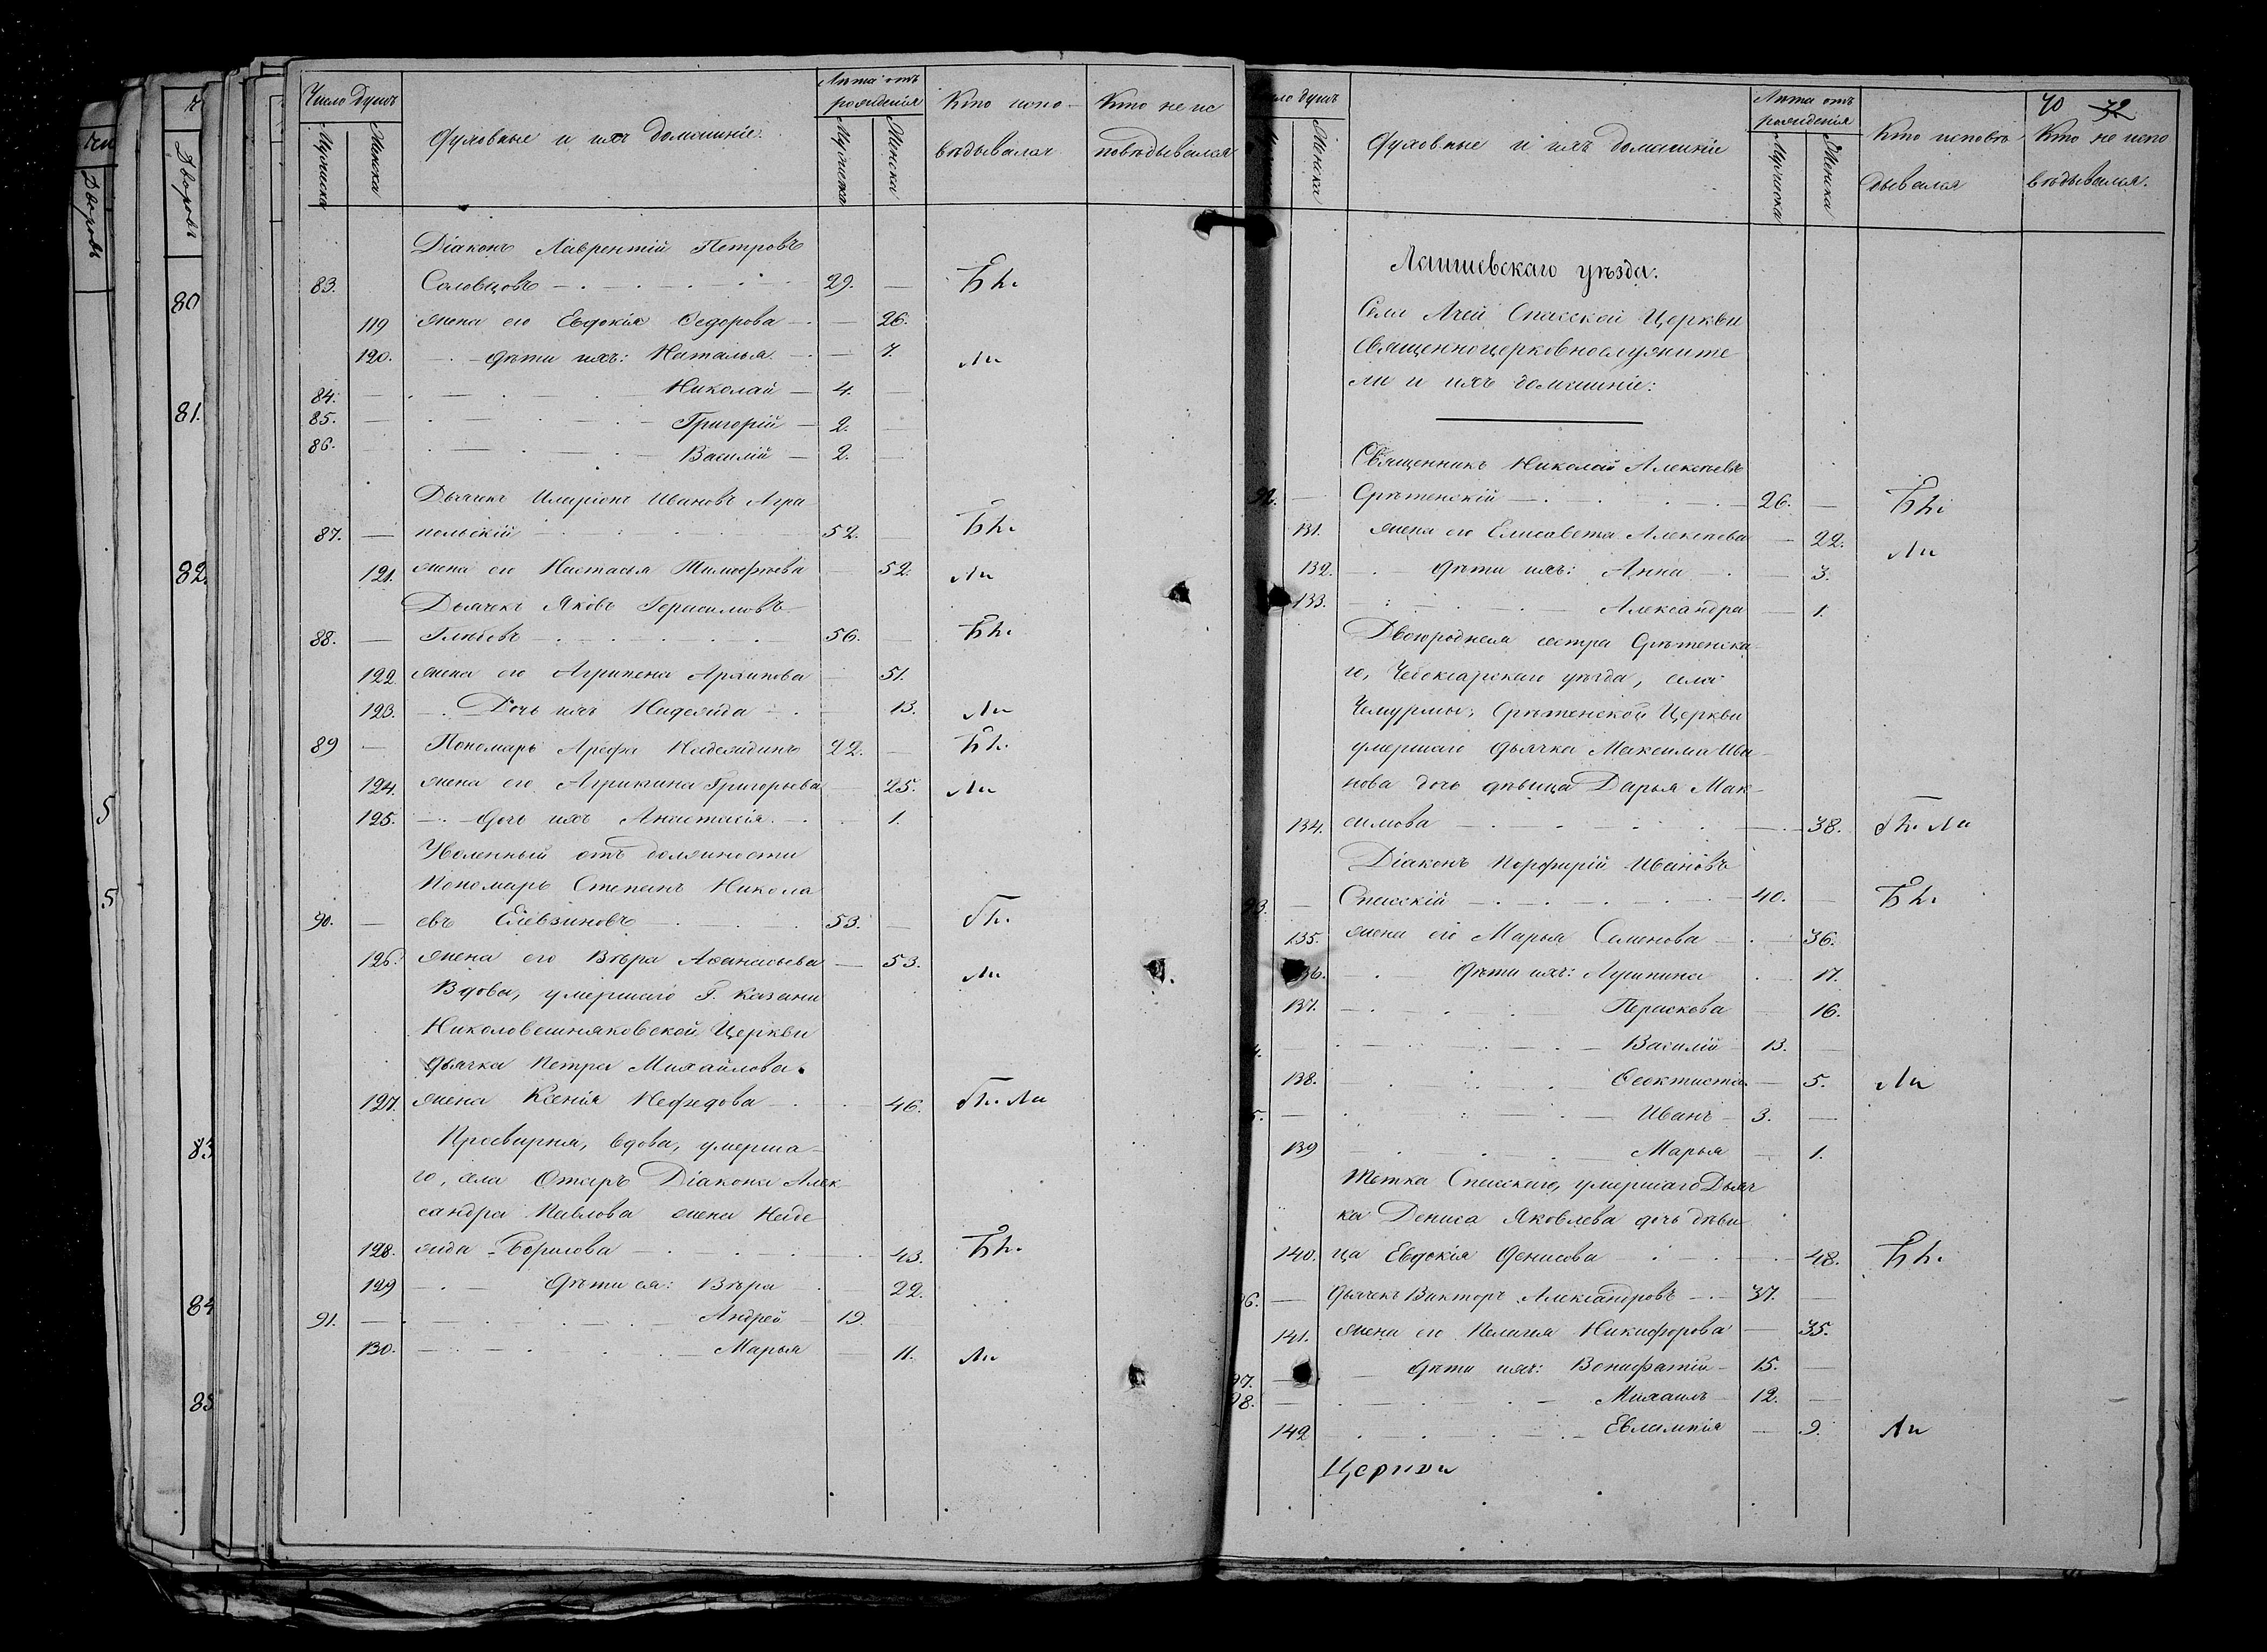 Число Душъ
Мужеска
Женска
Духовные и ихъ домашніе.
Лѣта отъ рожденія
Мужеска
Женска
Кто испо-
вѣдывался
Кто не ис
повѣдывался
Діаконъ Лаврентій Петровъ
83. Соловцовъ 29. —
119 жена его Евдокія Ѳедорова — 26.
120. дѣти ихъ: Наталья — 7.
84. Николай — 4. —
85. Григорій — 2. —
86. Василій — 2. —
Дьячекъ Иларіонъ Ивановъ Агра
87. — польскій 52.
121. жена его Настасья Тимофѣева — 52.
Дьячекъ Яковъ Герасимовъ
88. — Глѣбовъ 56. —
122. жена его Агрипена Архипова — 51.
123. — Дочь ихъ Надежда — 13.
89 — Пономарь Арефа Надеждинъ 22. —
124. жена его Агрипина Григорьева — 25.
125. — дочь ихъ Анастасія — 1.
Уволенный отъ должности
Пономарь Степанъ Никола
90. — евъ Елевзиновъ 53. —
126. жена его Вѣра Аѳанасьева — 53.
Вдова, умершаго Г. Казани
Николовешняковской Церкви
дьячка Петра Михайлова
127. жена Ксенія Нефедова — 46.
Просвирня, вдова, умерша-
го, села Отаръ Діакона Алек-
сандра Павлова жена Наде
128. жда Борисова — 43.
129 дѣти ея: Вѣра — 22.
91. Андрей — 19.
130. Марья — 11.
70 72
Число душъ
Женска
Духовные и ихъ домашніе
Лѣта отъ рожденія
Мужеска
Женска
Кто исповѣ
дывался
Кто не испо
вѣдывался.
Лаишевскаго уѣзда.
Села Ачей Спасской Церкви
Священноцерковнослужите
ли и ихъ домашніе:
Священникъ Николай Алексѣевъ
92. — Срѣтенскій 26. —
131. жена его Елисавета Алексѣева — 22.
132. — дѣти ихъ: Анна — 3.
133. Александра — 1.
Двоюродная сестра Срѣтенска-
го, Чебоксарскаго уѣзда, села
Чемурши, Срѣтенской Церкви
умершаго дьячка Максима Ива-
нова дочь дѣвица Дарья Мак-
134. симова — 38.
Діаконъ Порфирій Ивановъ
93. — Спасскій 40. —
135. жена его Марья Семенова — 36.
136. дѣти ихъ: Агрипина — 17.
137. Параскова — 16.
Василій 13. —
138. Ѳеоктиста — 5.
Иванъ 3. —
139 Марья — 1.
Тетка Спасскаго, умершаго Дьяч
ка Дениса Яковлева дочь дѣви
140. ца Евдокія Денисова — 48.
96. — Дьячекъ Викторъ Александровъ 37. —
141. жена его Пелагея Никифорова — 35.
97. — дѣти ихъ: Вонифатій 15. —
98. — Михаилъ 12. —
142 Евлампія — 9.
Церкви
Дворовъ
80
81.
82.
83
84
85
Дворовъ
5
5